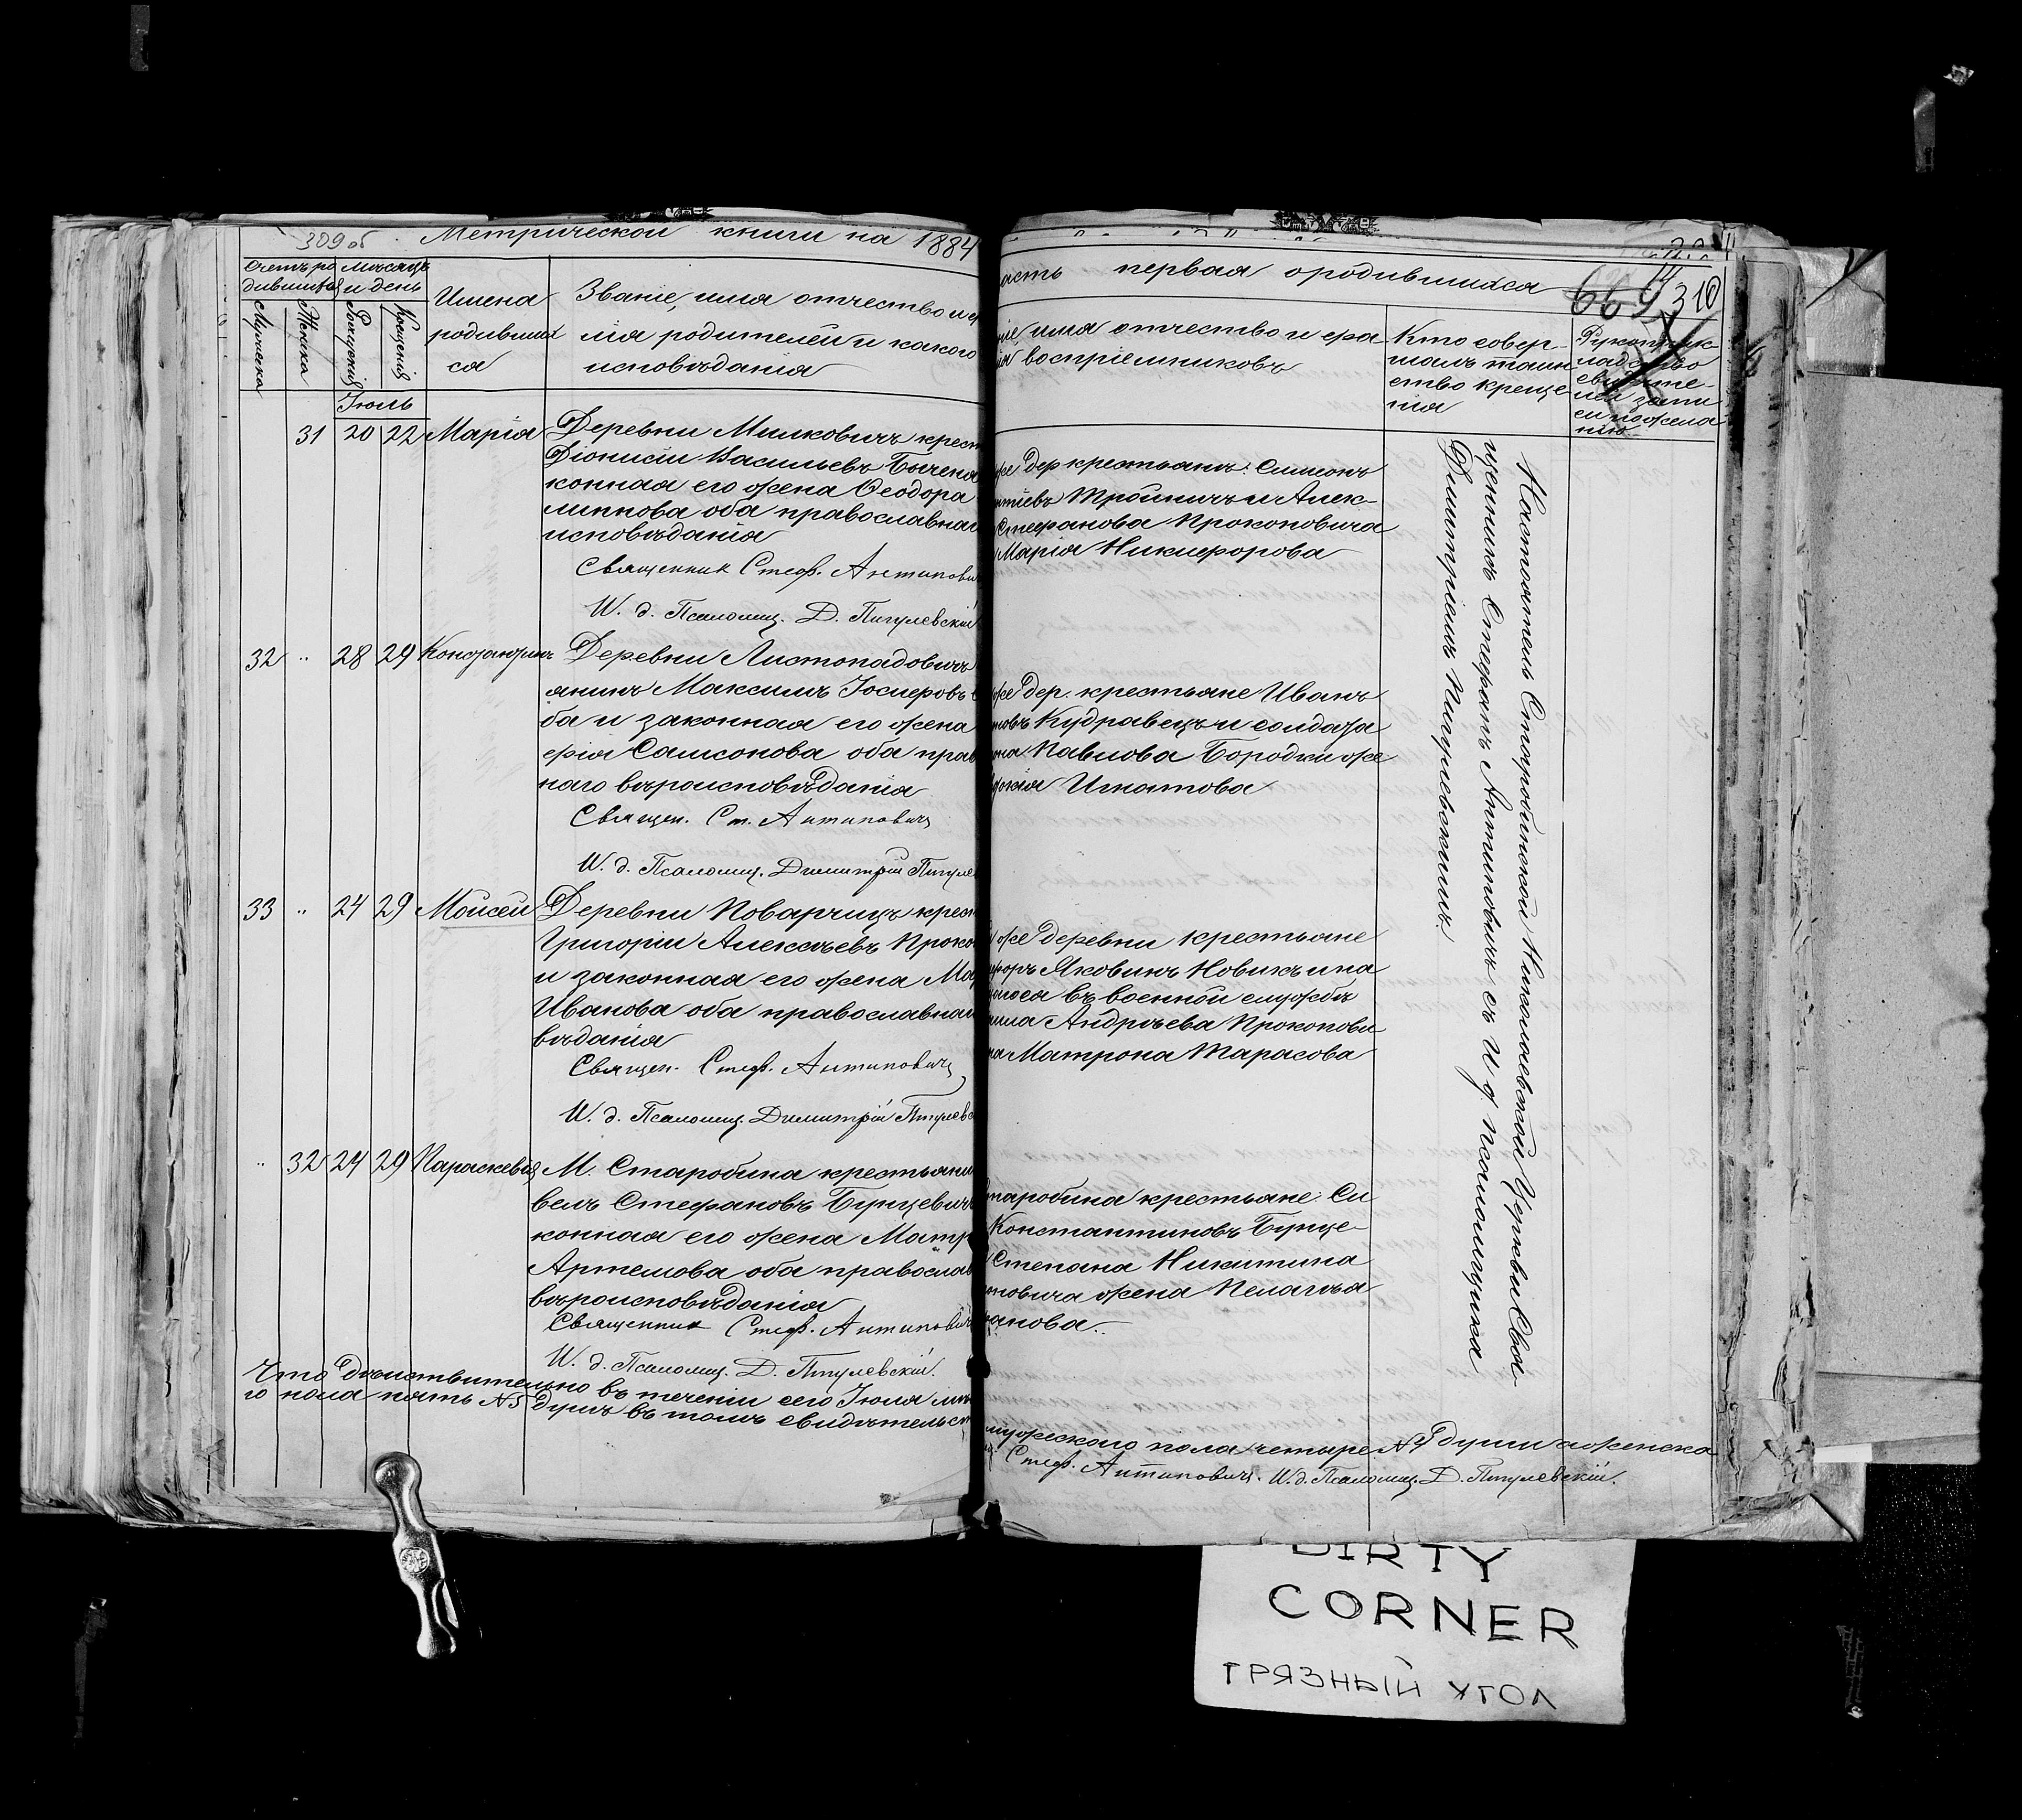 309 об
Метрической книги на 1884
Счетъ ро
дившихся
Мѣсяцъ
и день
Мужеска
Женска
Рожденія
Крещенія
Имена
родивших
ся
Званіе, имя отчество и фа
лія родителей и какого
исповѣданія
Іюль
31 20 22 Марія Деревни Милковичъ крест
Діонисій Васильевъ
конная его жена Ѳеодора
липпова оба православнаг
исповѣданія
Священник Стеф. Антипови
И. д. Псаломщ. Д. Пигулевскій
32 " 28 29 Константинъ Деревни Листопадовичъ
янинъ Максимъ Іосифовъ
ба и законная его жена
фія Самсонова оба прав
наго вѣроисповѣданія
Священ. Ст. Антиповичъ
И. д. Псаломщ. Димитрій Пигуле
33 " 24 29 Моисей Деревни Поварчицъ крест
Григорій Алексѣевъ Проко
и законная его жена Ма
Иванова оба православнаг
вѣданія
Священ. Стеф. Антиповичъ
И. д. Псаломщ. Димитрій Пигулевс
" 32 24 29 Параскева М. Старобина крестьяни
велъ Стефановъ Бунцевичъ
конная его жена Матр
Артемова оба православ
вѣроисповѣданія
Священник Стеф. Антипович
И. д. Псаломщ. Д. Пигулевскій.
Что дѣйствительно въ теченіи сего Іюля мѣ
го пола пять №5 душъ въ томъ свидѣтельст
асть первая о родившихся
669 310
ніе, имя отчество и фа
ія воспріемниковъ
Кто совер-
шалъ таин
ство креще
нія
Рукоприк-
ладство
свидѣте-
лей запи
си по жела
нію
же дер крестьянъ: Симеонъ
нтіевъ Тройничъ и Алек-
Стефанова Прокоповича
Марія Никифорова
же дер. крестьяне Иванъ
новъ Кудравецъ и солдата
она Павлова Бородки же
докія Игнатова
же деревни крестьяне
форъ Яковинъ Новикъ и на
щагося въ военной службѣ
ила Андрѣева Прокопови
на Матрона Тарасова
таробина крестьяне: Си
Константиновъ Бунце-
Степана Никитина
повича жена Пелагѣя
анова.
Настоятель Старобинской Николаевской Церкви Свя
щенникъ Стефанъ Антиповичъ съ И. д. псаломщика
Димитріемъ Пигулевскимъ.
мужескаго пола четыре №4 души а женска
Стеф. Антиповичъ. И. д. Псаломщ. Д. Пигулевскій.
DIRTY
CORNER
ГРЯЗНЫЙ УГОЛ